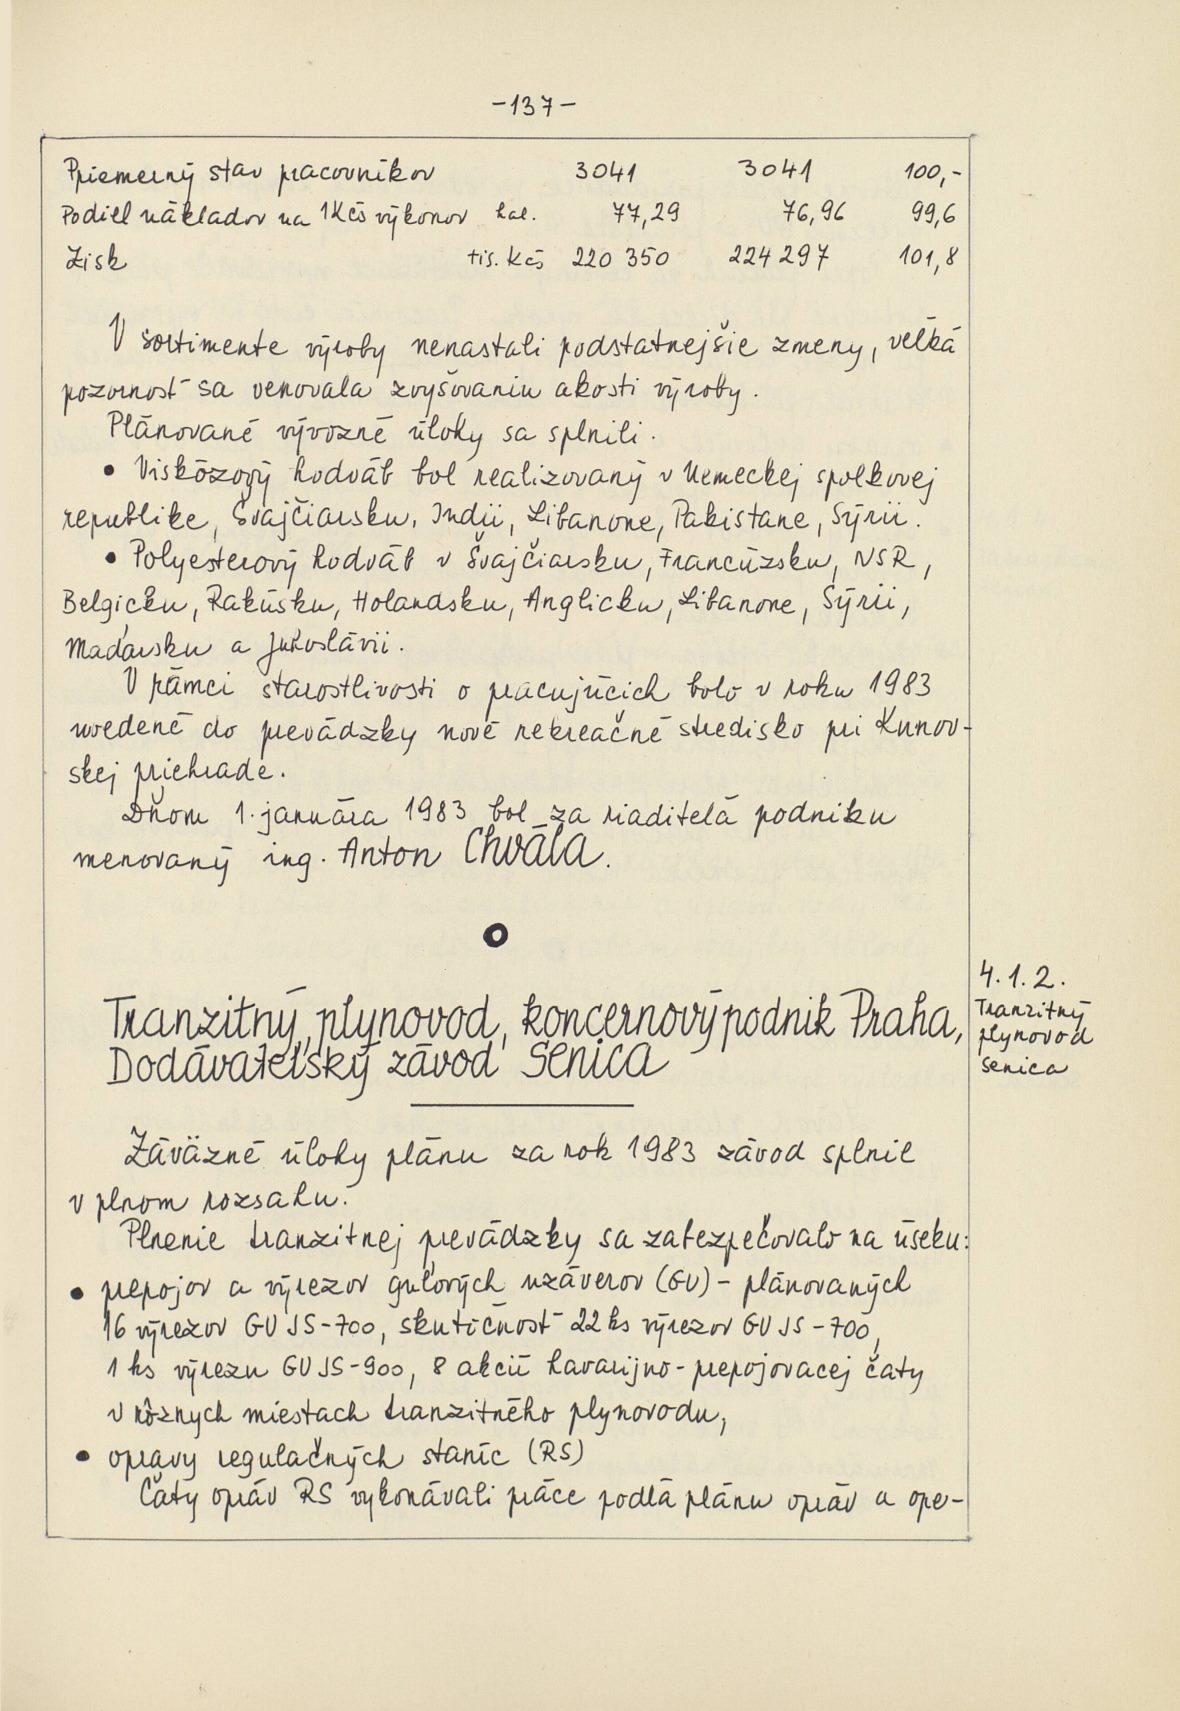 -137-
Priemerný stav pracovníkov 3041 3041 100,-
Podiel nákladov na 1Kčs výkonov hal. 77,29 76,96 99,6
Zisk tis. Kčs 220 350 224 297 101,8
V sortimente výroby nenastali podstatnejšie zmeny, veľká
pozornosť sa venovala zvyšovaniu akosti výroby.
Plánované vývozné úlohy sa splnili.
• Viskózový hodváb bol realizovaný v Nemeckej spolkovej
republike, Švajčiarsku, Indii, Libanone, Pakistane, Sýrii.
• Polyesterový hodváb v Švajčiarsku, Francúzsku, NSR,
Belgicku, Rakúsku, Holandsku, Anglicku, Libanone, Sýrii,
Maďarsku a Juhoslávii.
V rámci starostlivosti o pracujúcich bolo v roku 1983
uvedené do prevádzky nové rekreačné stredisko pri Kunov-
skej priehrade.
Dňom 1. januára 1983 bol za riaditeľa podniku
menovaný ing. Anton Chvála.
o
Tranzitný plynovod, koncernový podnik Praha,
Dodávateľský závod Senica
4.1.2.
Tranzitný
plynovod
Senica
Záväzné úlohy plánu za rok 1983 závod splnil
v plnom rozsahu.
Plnenie tranzitnej prevádzky sa zabezpečovalo na úseku:
• prepojov a výrezov guľových uzáverov (GU) - plánovaných
16 výrezov GU JS-700, skutočnosť 22 ks výrezov GU JS-700,
1 ks výrezu GU JS-900, 8 akcií havarijno-prepojovacej čaty
v rôznych miestach tranzitného plynovodu,
• opravy regulačných staníc (RS)
Čaty opráv RS vykonávali práce podľa plánu opráv a ope-